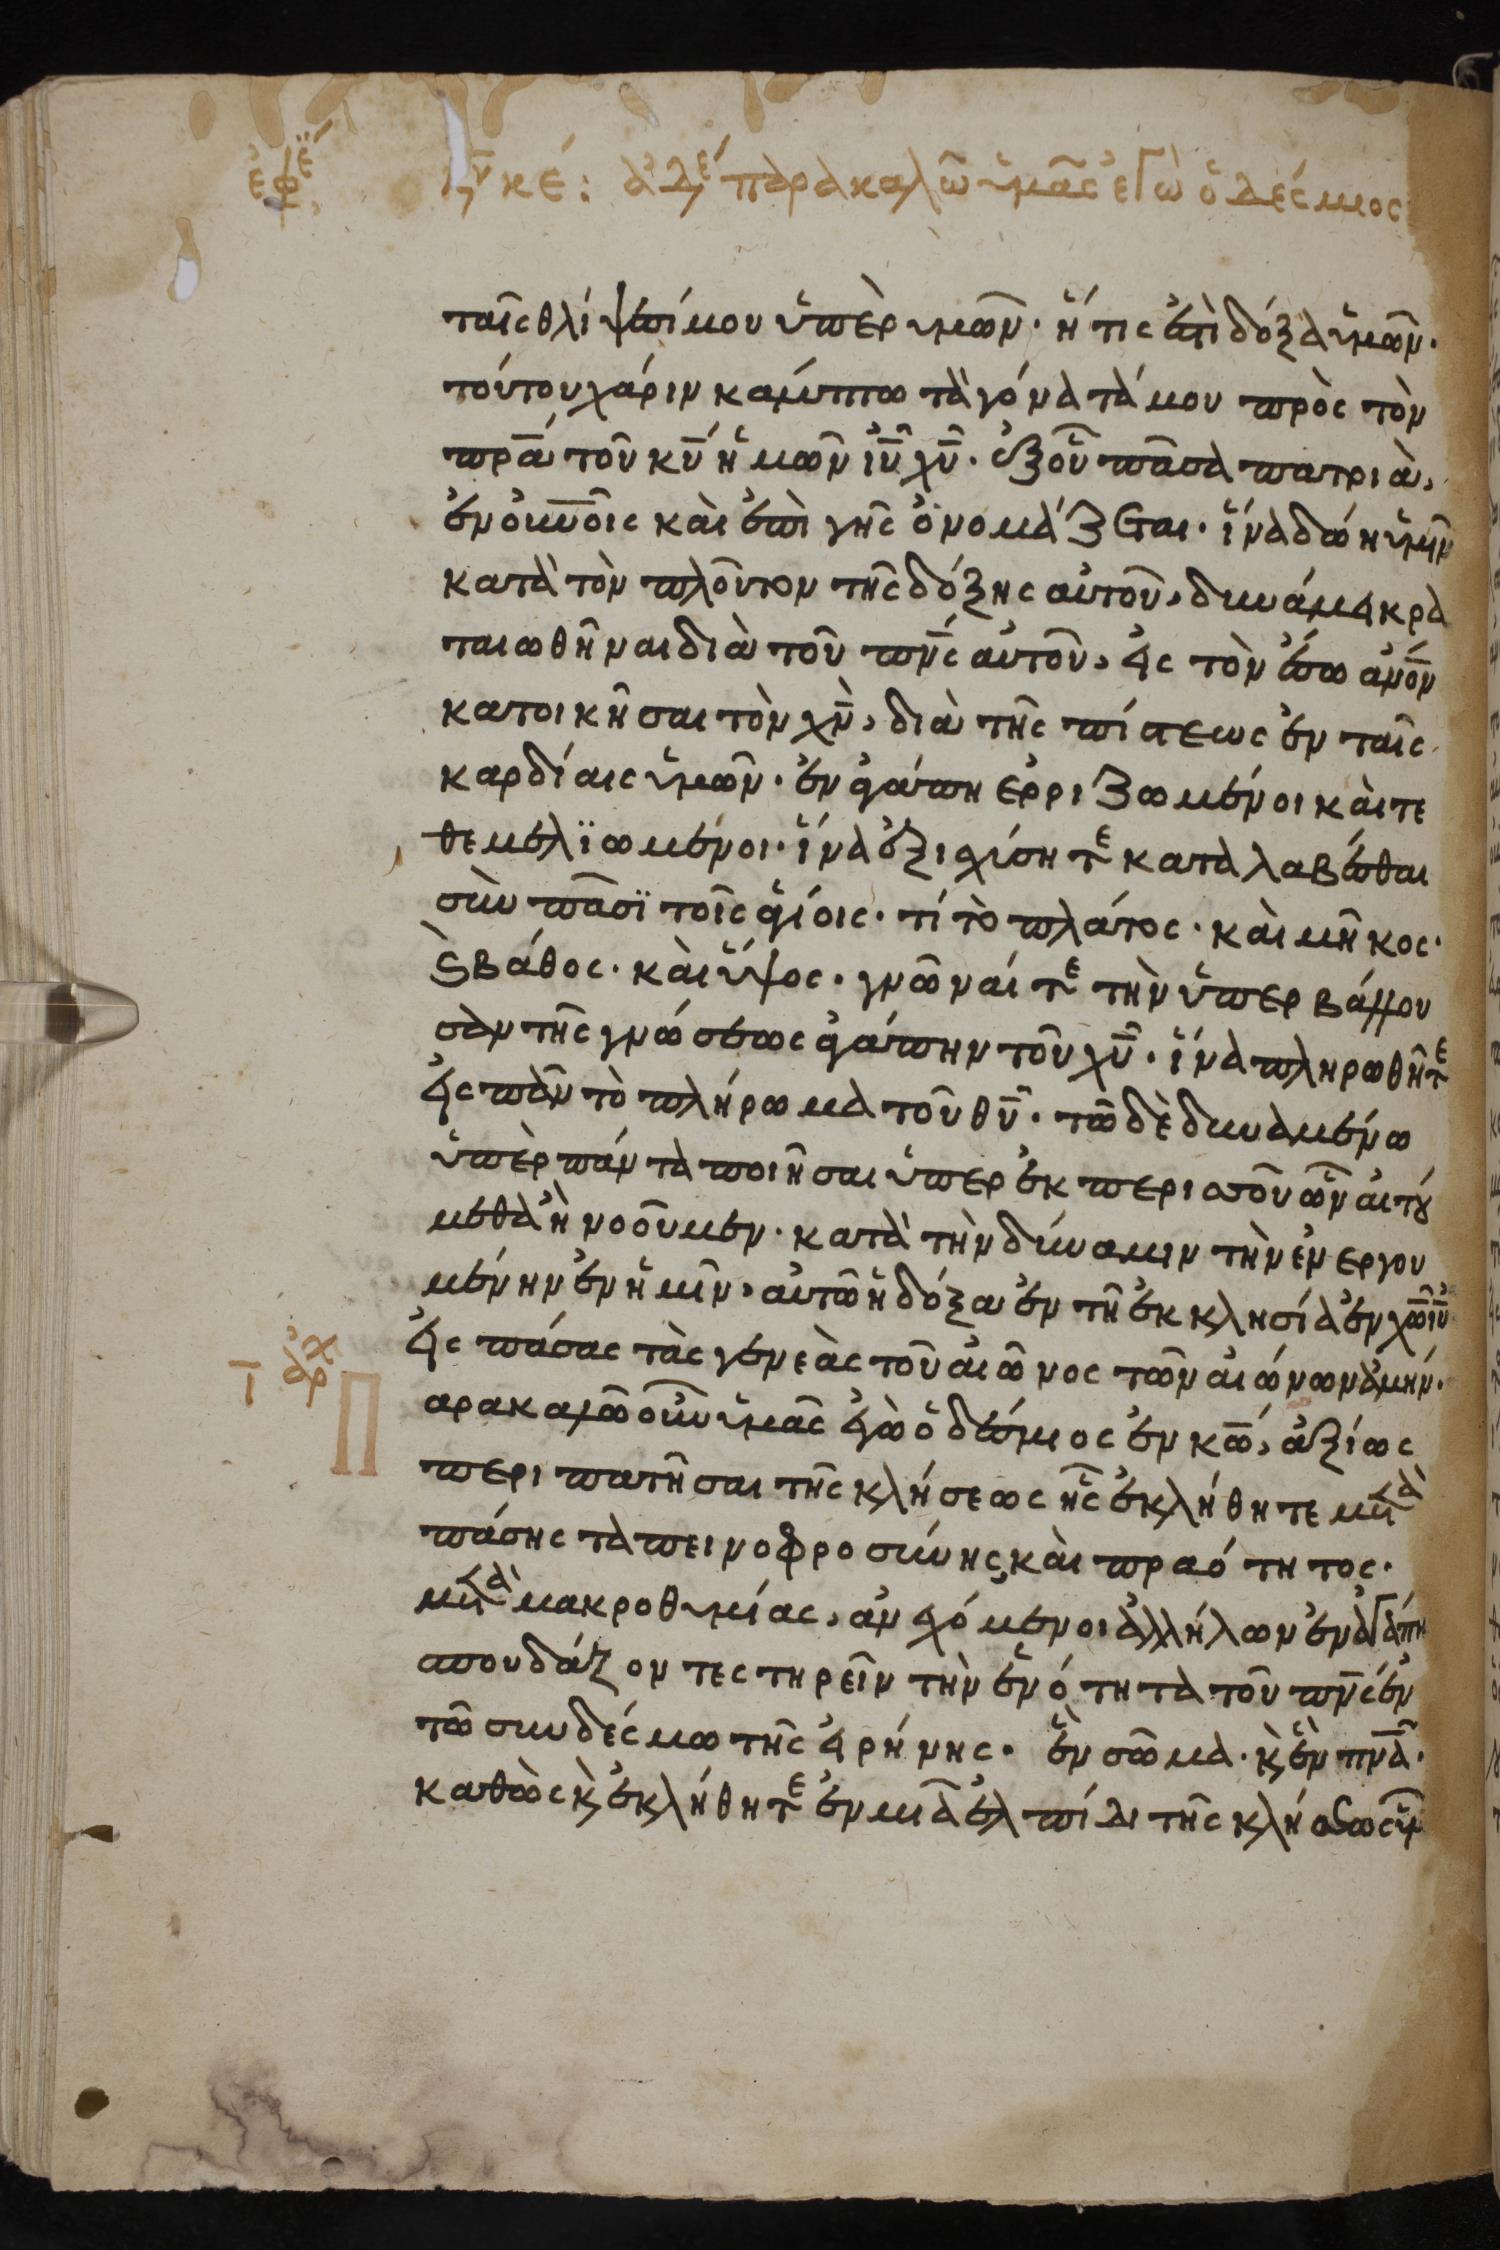 ἐφε κυ κε: ἀδε παρακαλῶ ὑμᾶς ἐγὼ ὁ δέσμιος
ταῖς θλίψεσί μου ὑπὲρ ὑμῶν· ἥτις ἐστὶ δόξα ὑμῶν·
τούτου χάριν κάμπτω τὰ γόνατά μου πρὸς τὸν
πρα τοῦ κυ ἡμῶν ιυ χυ· ἐξ οὗ πᾶσα πατριὰ,
ἐν οὐνοῖς καὶ ἐπὶ γῆς ὀνομάζεται· ἵνα δώη ὑμῖν
κατὰ τὸν πλοῦτον τῆς δόξης αὐτοῦ, δυνάμει κρα
ταιωθῆναι διὰ τοῦ πνς αὐτοῦ, εἰς τὸν ἔσω ανον
κατοικῆσαι τὸν χν, διὰ τῆς πίστεως ἐν ταῖς
καρδίαις ὑμῶν· ἐν ἀγάπη ἐρριζωμένοι καὶ τε
θεμελϊωμένοι· ἵνα ἐξισχύσητε καταλαβέσθαι
σὺν πᾶσϊ τοῖς ἁγίοις· τί τὸ πλάτος· καὶ μῆκος·
ϗ βάθος· καὶ ὕψος· γνῶναί τε τὴν ὑπερβάλλου
σαν τῆς γνώσεως ἀγάπην τοῦ χυ· ἵνα πληρωθῆτε
εἰς πᾶν τὸ πλήρωμα τοῦ θυ· τῶ δὲ δυναμένω
ὑπὲρ πάντα ποιῆσαι ὑπερ ἐκ περισσοῦ ὧν αἰτού
μεθα ἢ νοοῦμεν· κατὰ τὴν δύναμιν τὴν ἐνεργου
μένην ἐν ἡμῖν, αὐτῶ ἡ δόξα ἐν τῆ ἐκκλησία ἐν χω ιυ
εἰς πάσας τὰς γενεὰς τοῦ αἰῶνος τῶν αἰώνων ἀμήν·
αρχ Παρακαλῶ οὖν ὑμᾶς ἐγὼ ὁ δέσμιος ἐν κω, ἀξίως
περιπατῆσαι τῆς κλήσεως ἧς ἐκλήθητε μετὰ
πάσης ταπεινοφροσύνης, καὶ πραότητος·
μετὰ μακροθυμίας, ἀνεχόμενοι ἀλλήλων ἐν ἀγάπη
σπουδάζοντες τηρεῖν τὴν ἑνότητα τοῦ πνς ἐν
τῶ συνδέσμω τῆς εἰρήνης· ἓν σῶμα· ϗ ἓν πνα·
καθὼς ϗ ἐκλήθητε ἐν μιᾶ ἐλπίδι τῆς κλήσεως ὑμ